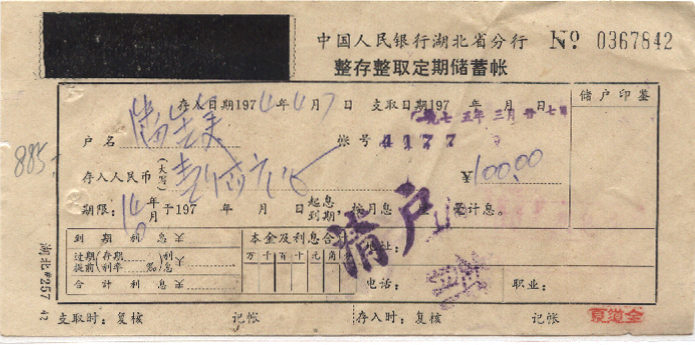 中国人民银行湖北省分行 № 0367842
整存整取定期储蓄帐
存入日期1974年4月7日 支取日期197 年 月 日 储户印鉴
一九七五年三月廿七日
户名 帐号 4177
885
存入人民币(大写) ¥100.00
期限: 年月于197 年 月 日起息到期,按月息 毫计息。
清户
到期利息 本金及利息合计 地址:
过期/提前 存期/利率 利息 万千百十元角分
合计利息 电话: 职业:
湖北#257 42
支取时:复核 记帐 存入时:复核 记帐